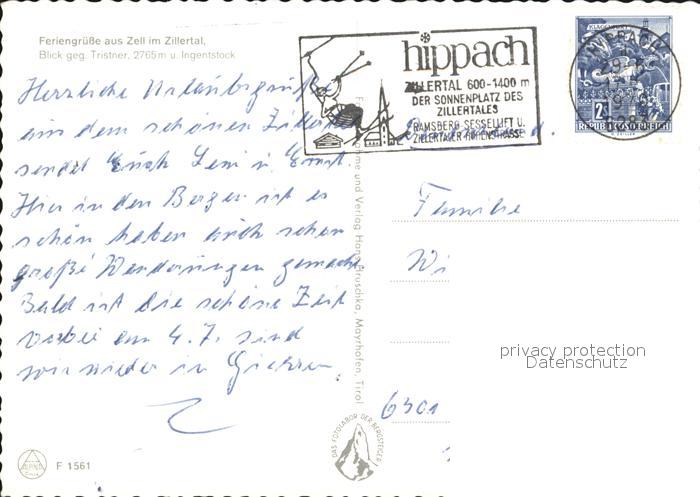 Feriengrüße aus Zell im Zillertal,
Blick geg. Tristner, 2765 m u. Ingentstock
Herzliche Urlaubsgrüße
aus dem schönen Zillertal
sendet Euch Leni u. Ernst.
Hier in den Bergen ist es
schön haben auch schon
große Wanderungen gemacht
Bald ist die schöne Zeit
vorbei am 4.7. sind
wir wieder in
hippach
ZILLERTAL 600-1400 m
DER SONNENPLATZ DES
ZILLERTALES
RAMSBERG SESSELLIFT U.
ZILLERTALER HÖHENSTRASSE
HIPPACH
2
REPUBLIK ÖSTERREICH
Familie
Wi
6301
privacy protection
Datenschutz
und Verlag Hans Hruschka, Mayrhofen, Tirol
DAS FOTOLABOR DER BERGSTEIGER
F 1561